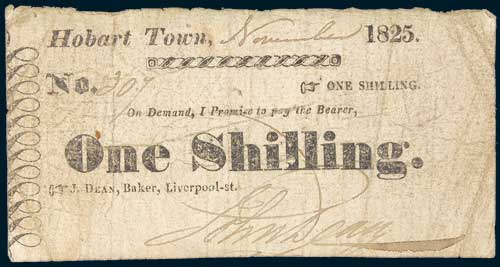 Hobart Town, November 1825.
No. 307
☞ ONE SHILLING.
On Demand, I Promise to pay the Bearer,
One Shilling.
☞ J. DEAN, Baker, Liverpool-st.
John Dean